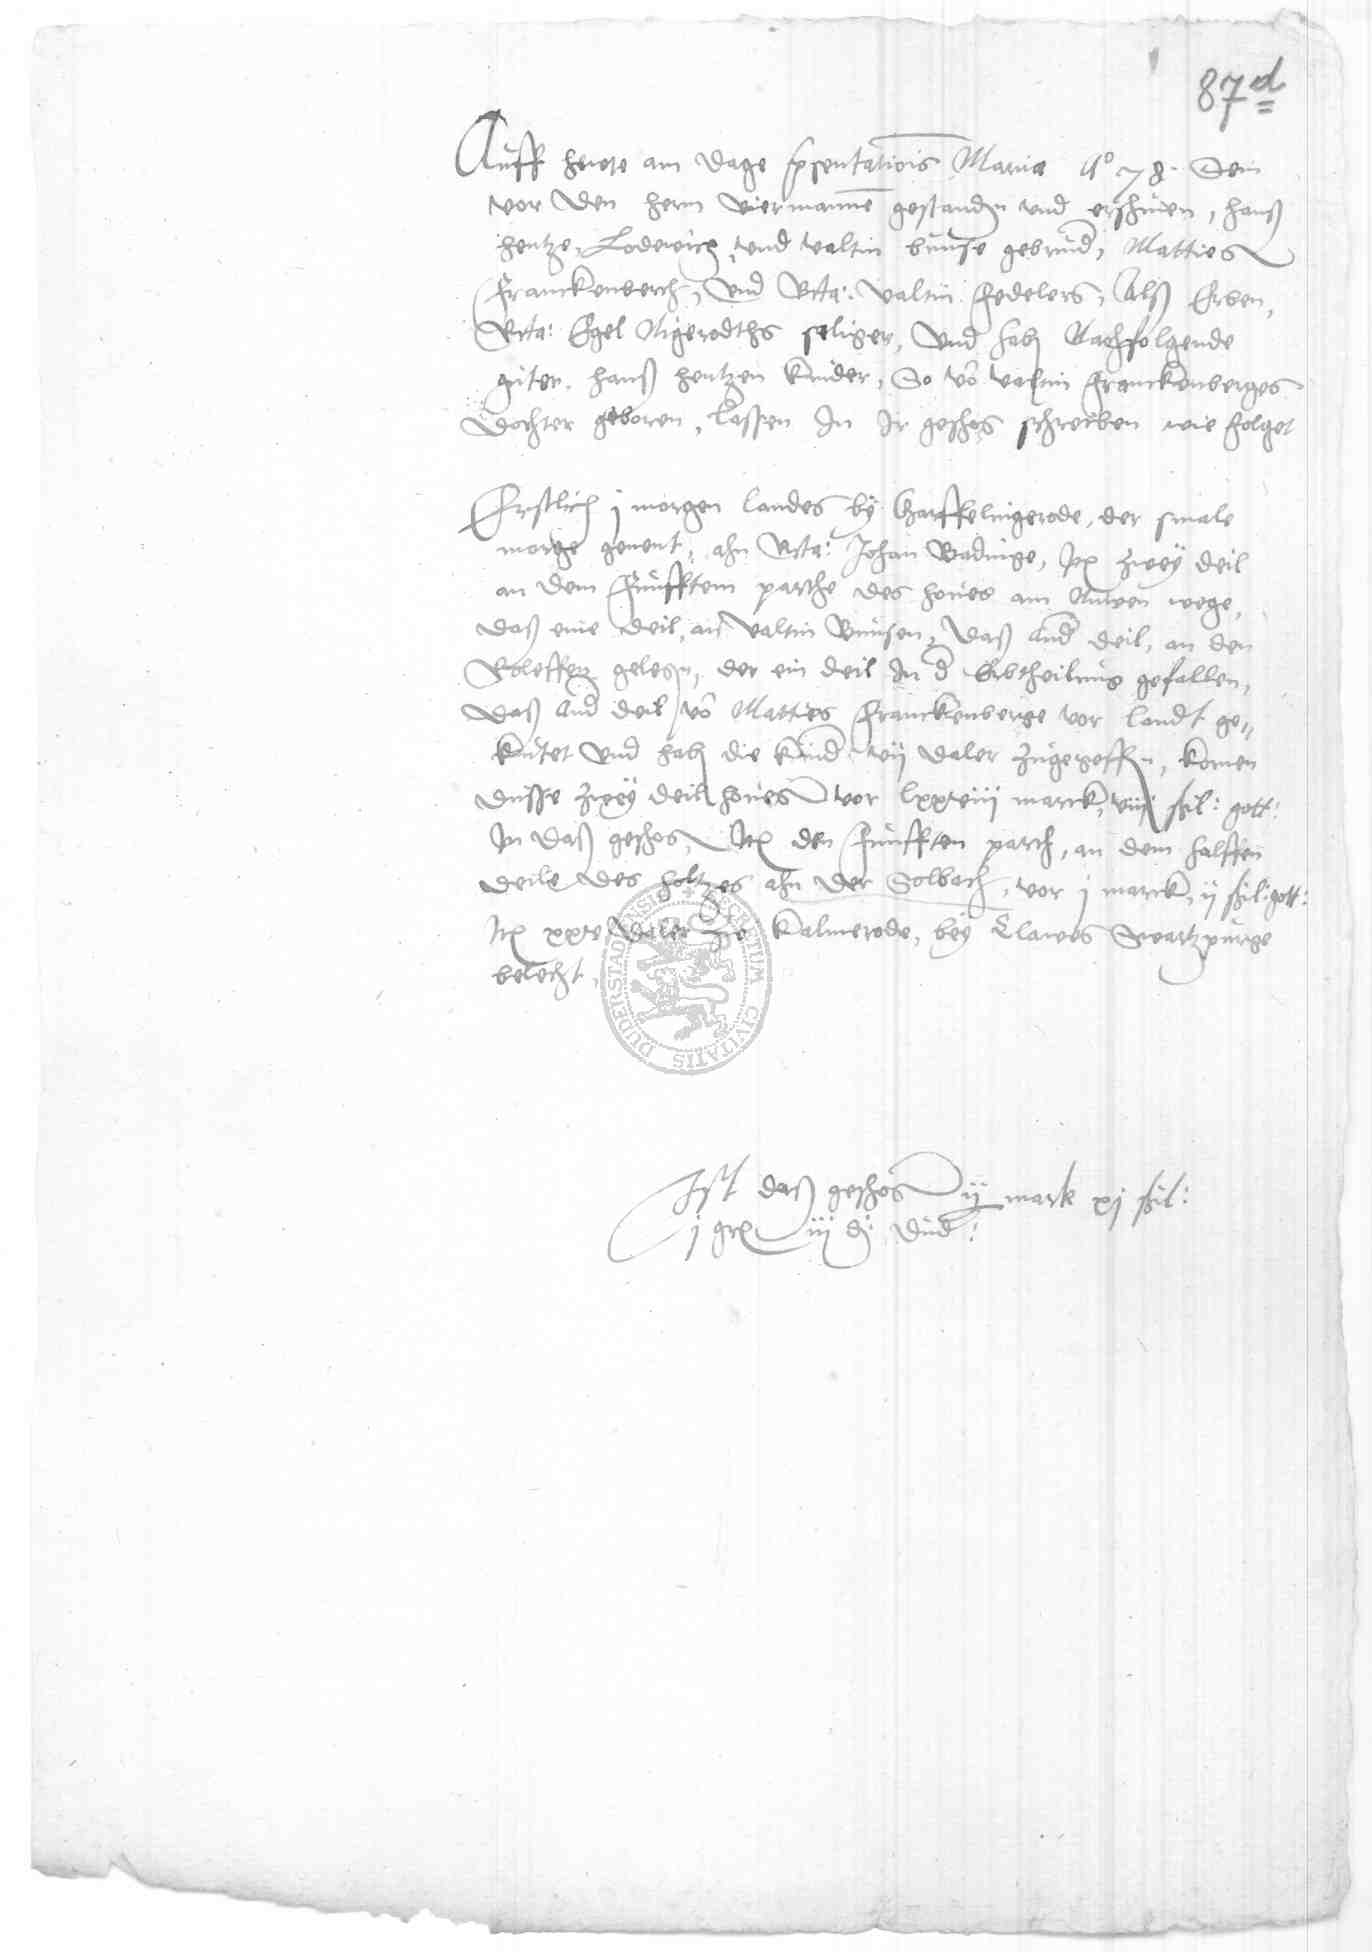 87d
Auff heute am dage psentatiois Mariæ Ao 78. Sein
vor den hern viermanne gestanden vnd erschinen, hanß
hentze, Lodewich vnd valtin buise gebrud, Matties
Franckenberch, vnd Rcta: valtin Fedelers, Alß Erben,
Rcta: Egel Nigerodths seliger, vnd hab Nachfolgende
guter hanß hentzen kinder, So vo valtin Franckenberges
dochter geboren, lassen In Ir geschos schreiben wie folget
Erstlich j morgen landes by Gerffelingerode, der smale
morge genent, ahn Rcta: Johan Badinge, Ite zwey deil
an dem Funfftem parthe des houes am Nuwen wege,
daß eine deil, an valtin Buisen, daß And deil, an den
gelegen, der ein deil In d Erbtheilung gefallen,
daß And deil vo Matties Franckenberge vor landt ge„
butet vnd hab die kind vij daler zugegeffen, komen
dusse zwey deil houes vor lxxviii marck, viij ſchil: gott:
In daß geschos, Ite den Funfften parth, an dem halffen
deile des holtzes ahn der Solbach, vor j marck, ij ſchil: gott:
Ite xxv daler zo Kalmerode, bey Clawes Swartzpurge
belecht,
DUDERSTADENSIS SECRETUM CIVITATIS
Ist daß geschos ij mark xj ſchil:
j gr iij d dud: